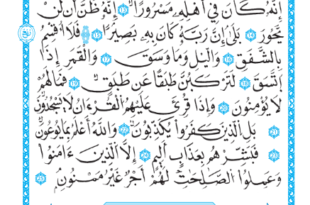 إِنَّهُۥ كَانَ فِىٓ أَهْلِهِۦ مَسْرُورًا ١٣ إِنَّهُۥ ظَنَّ أَن لَّن
يَحُورَ ١٤ بَلَىٰٓ إِنَّ رَبَّهُۥ كَانَ بِهِۦ بَصِيرًا ١٥ فَلَآ أُقْسِمُ
بِٱلشَّفَقِ ١٦ وَٱلَّيْلِ وَمَا وَسَقَ ١٧ وَٱلْقَمَرِ إِذَا
ٱتَّسَقَ ١٨ لَتَرْكَبُنَّ طَبَقًا عَن طَبَقٍ ١٩ فَمَا لَهُمْ
لَا يُؤْمِنُونَ ٢٠ وَإِذَا قُرِئَ عَلَيْهِمُ ٱلْقُرْءَانُ لَا يَسْجُدُونَ ۩
٢١ بَلِ ٱلَّذِينَ كَفَرُوا۟ يُكَذِّبُونَ ٢٢ وَٱللَّهُ أَعْلَمُ بِمَا يُوعُونَ
٢٣ فَبَشِّرْهُم بِعَذَابٍ أَلِيمٍ ٢٤ إِلَّا ٱلَّذِينَ ءَامَنُوا۟
وَعَمِلُوا۟ ٱلصَّـٰلِحَـٰتِ لَهُمْ أَجْرٌ غَيْرُ مَمْنُونٍۭ ٢٥